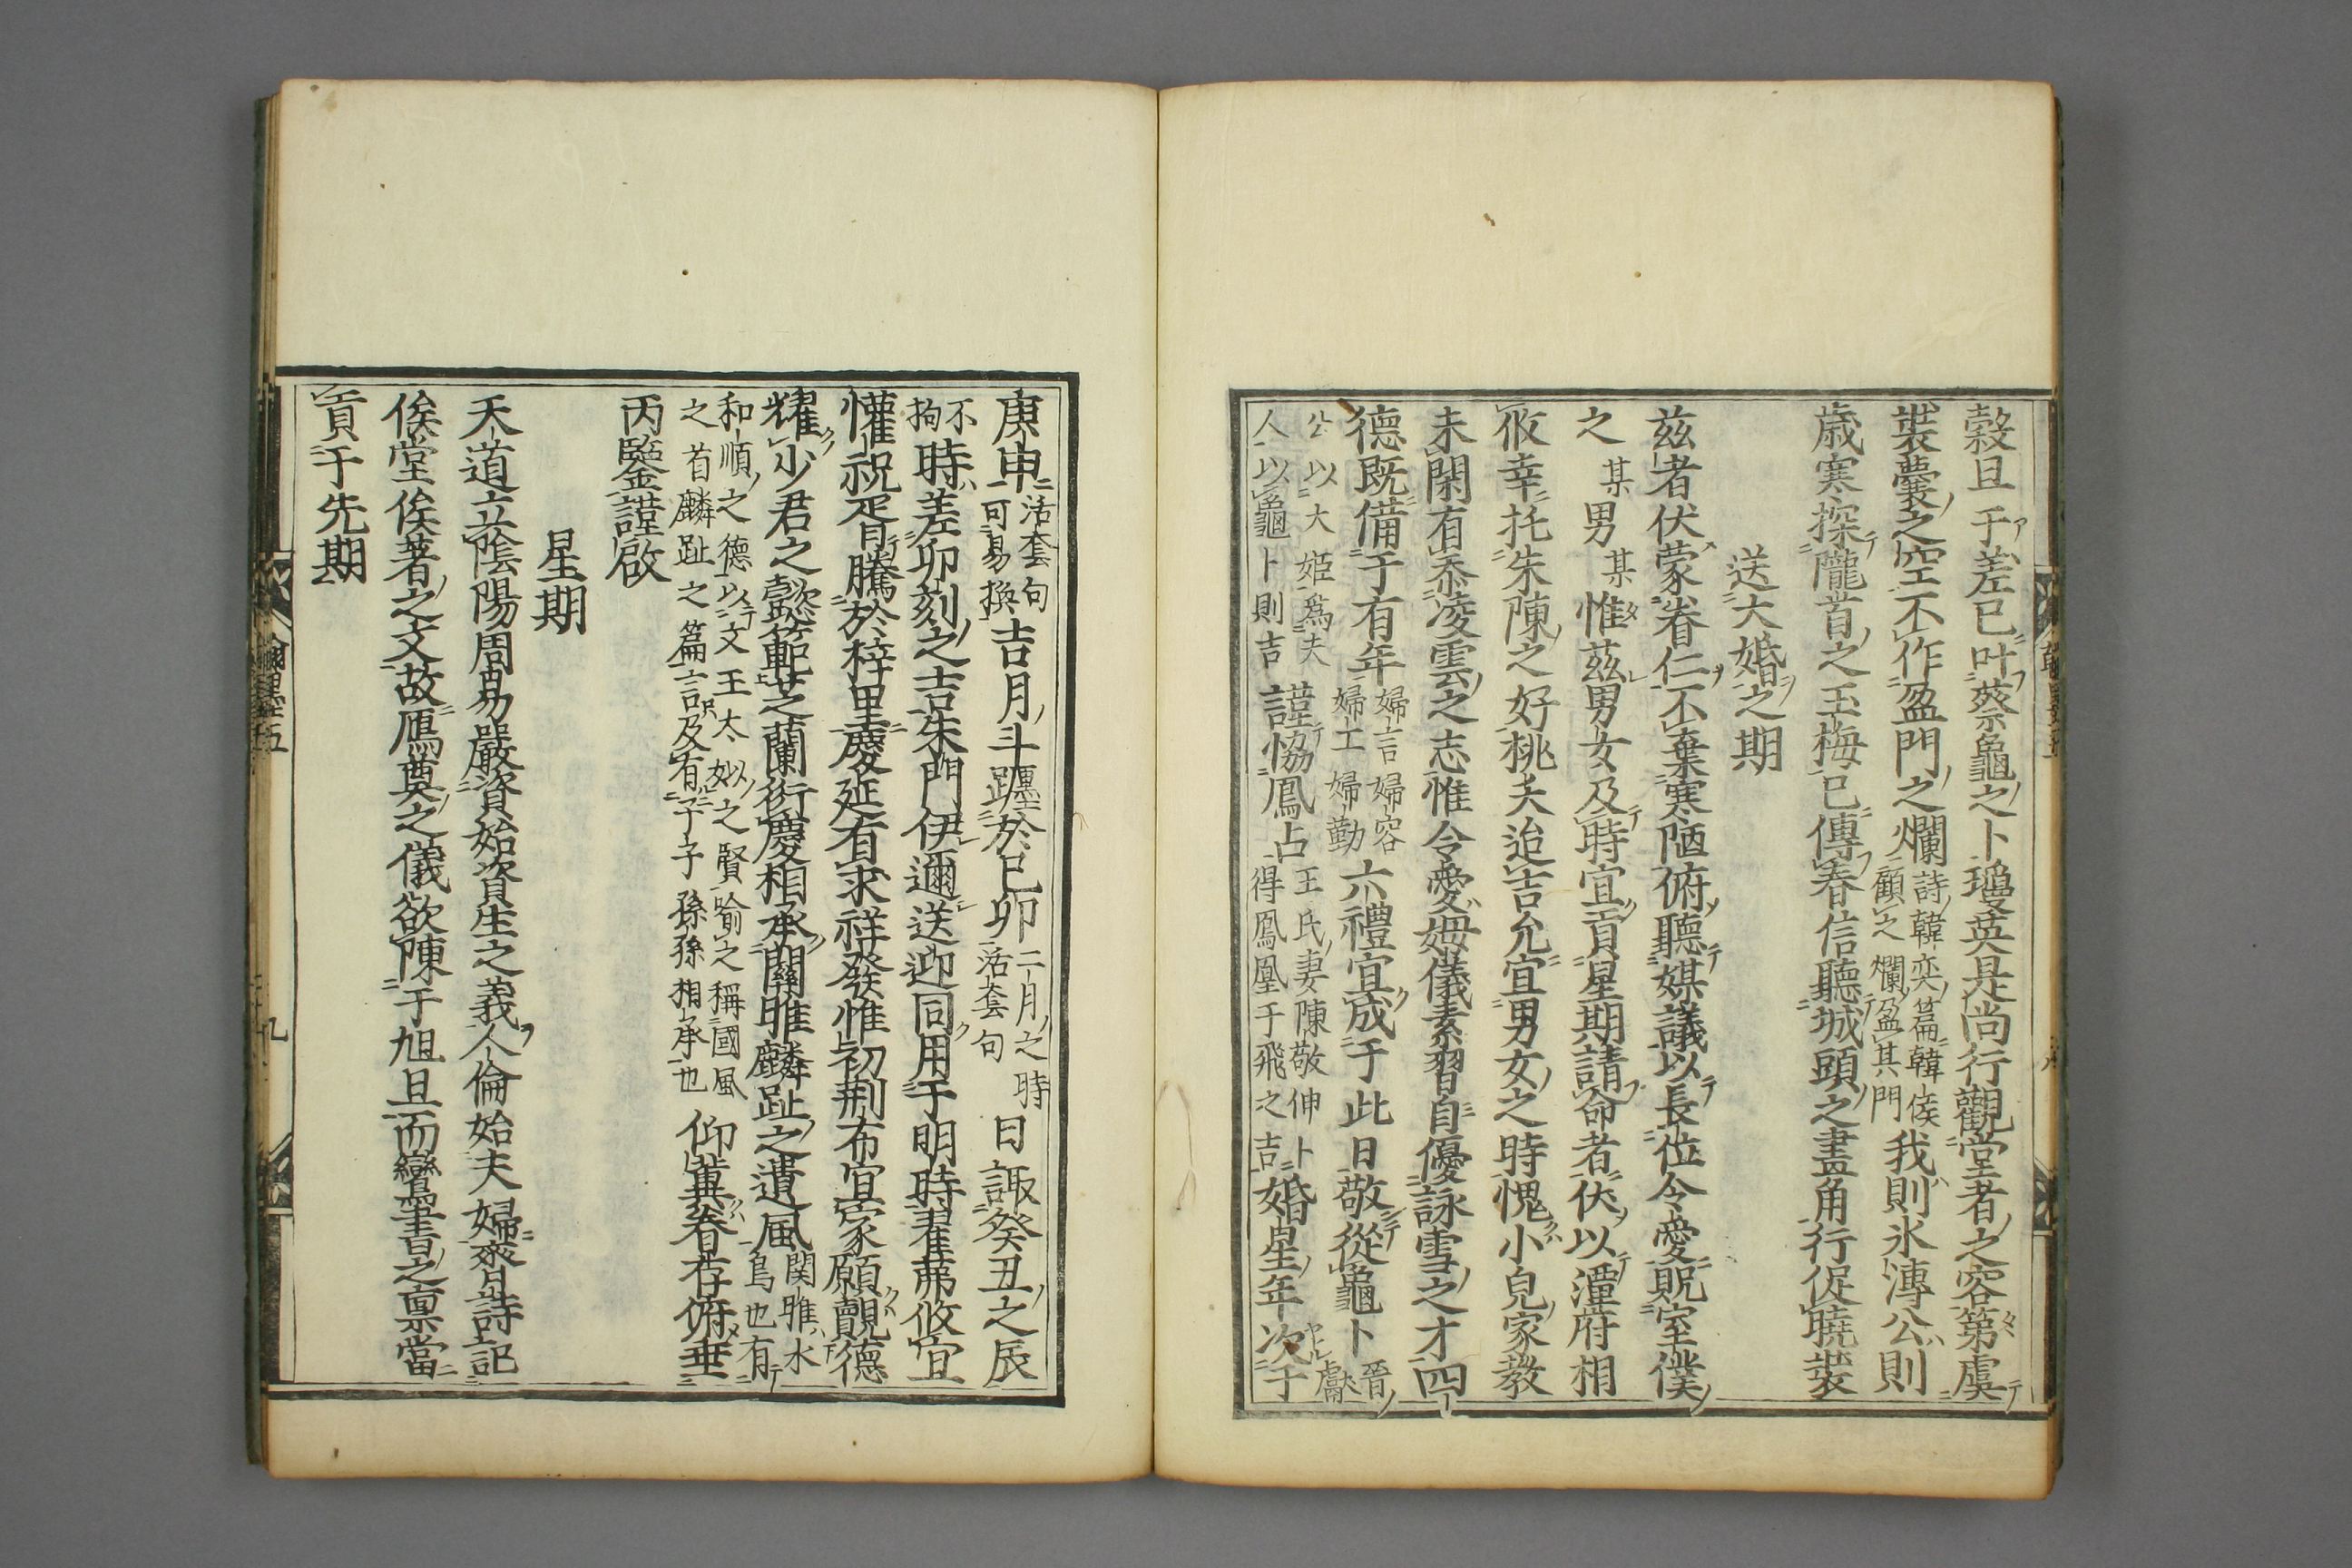 穀旦于差已叶蔡龜之卜瓊英是尚行觀堂者之容第虞
裝囊之空不作盈門之爛詩韓奕篇韓侯顧之爛盈其門我則氷漙公則
歳寒探隴首之玉梅已傳春信聽城頭之畫角行促曉裝
送大婚之期
茲者伏蒙眷仁不棄寒陋俯聽媒議以長位令愛貺室僕
之某男某惟茲男女及時宜貢星期請命者伏以潭府相
攸幸托朱陳之好桃夭迨吉允宜男女之時愧小兒家教
未閑有忝凌雲之志惟令愛姆儀素習自優詠雪之才四
德既備于有年婦言婦容婦工婦勤六禮宜成于此日敬從龜卜晉獻
公以大姫爲夫人以龜卜則吉謹恊鳳占王氏妻陳敬伸卜得鳳凰于飛之吉婚星年次于
庚申活套句可易換吉月斗躔於已卯二月之時活套句日諏癸丑之辰
不拘時差卯刻之吉朱門伊邇送迎同用于明時翟茀攸宜
懽祝胥騰於梓里慶延有求祥發惟初荆布宜家願覿德
耀少君之懿範芝蘭衍慶相承關雎麟趾之遺風関雎水鳥也有
和順之德以文王太姒之賢喻之稱國風之首麟趾之篇言及有子子孫孫相承也仰冀眷存俯垂
丙鑒謹啟
星期
天道立陰陽周易嚴資始資生之義人倫始夫婦齊詩記
俟堂俟著之文故鴈奠之儀欲陳于旭旦而鸞書之禀當
貢于先期
翰墨五